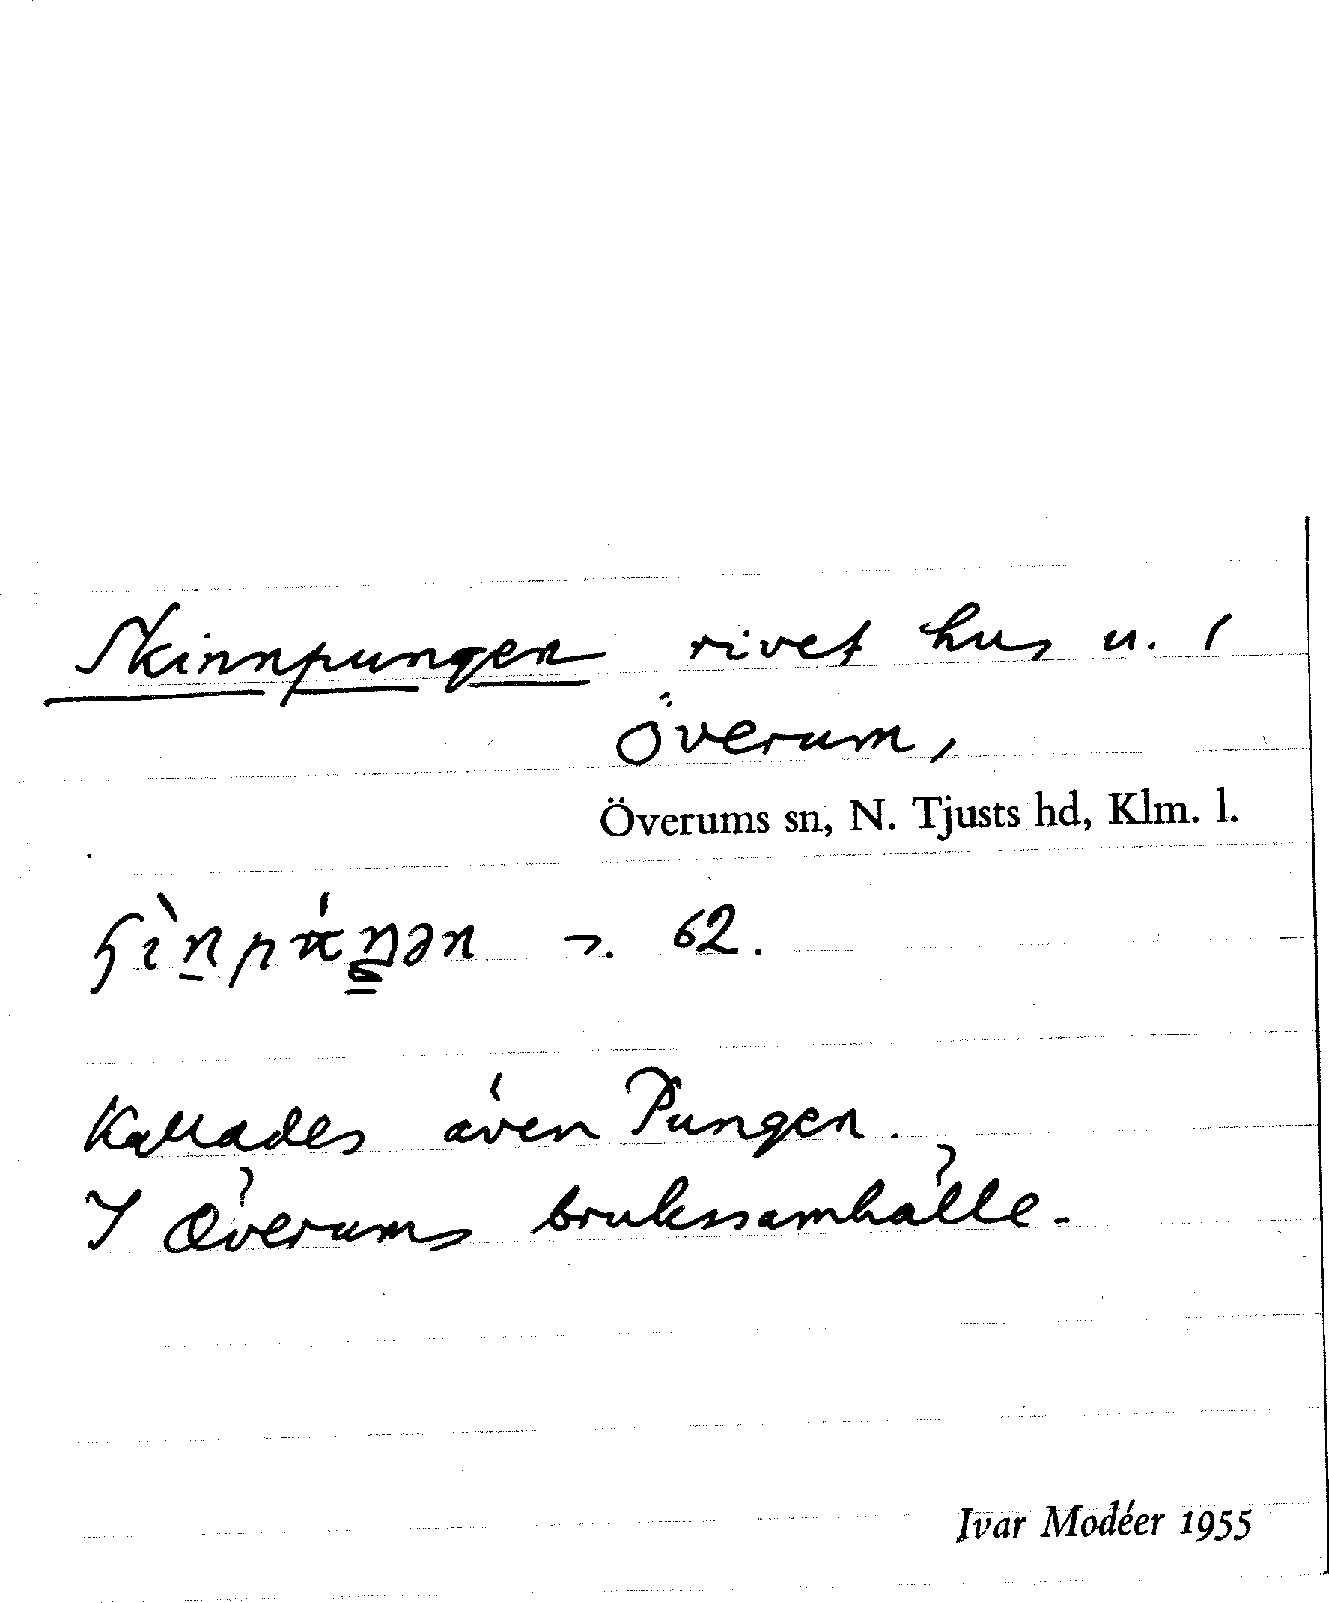 Skinnpungen rivet hus u. (
Överum,
Överums sn, N. Tjusts hd, Klm. l.
62.
Kallades även Pungen.
I Överums brukssamhälle.
Ivar Modéer 1955